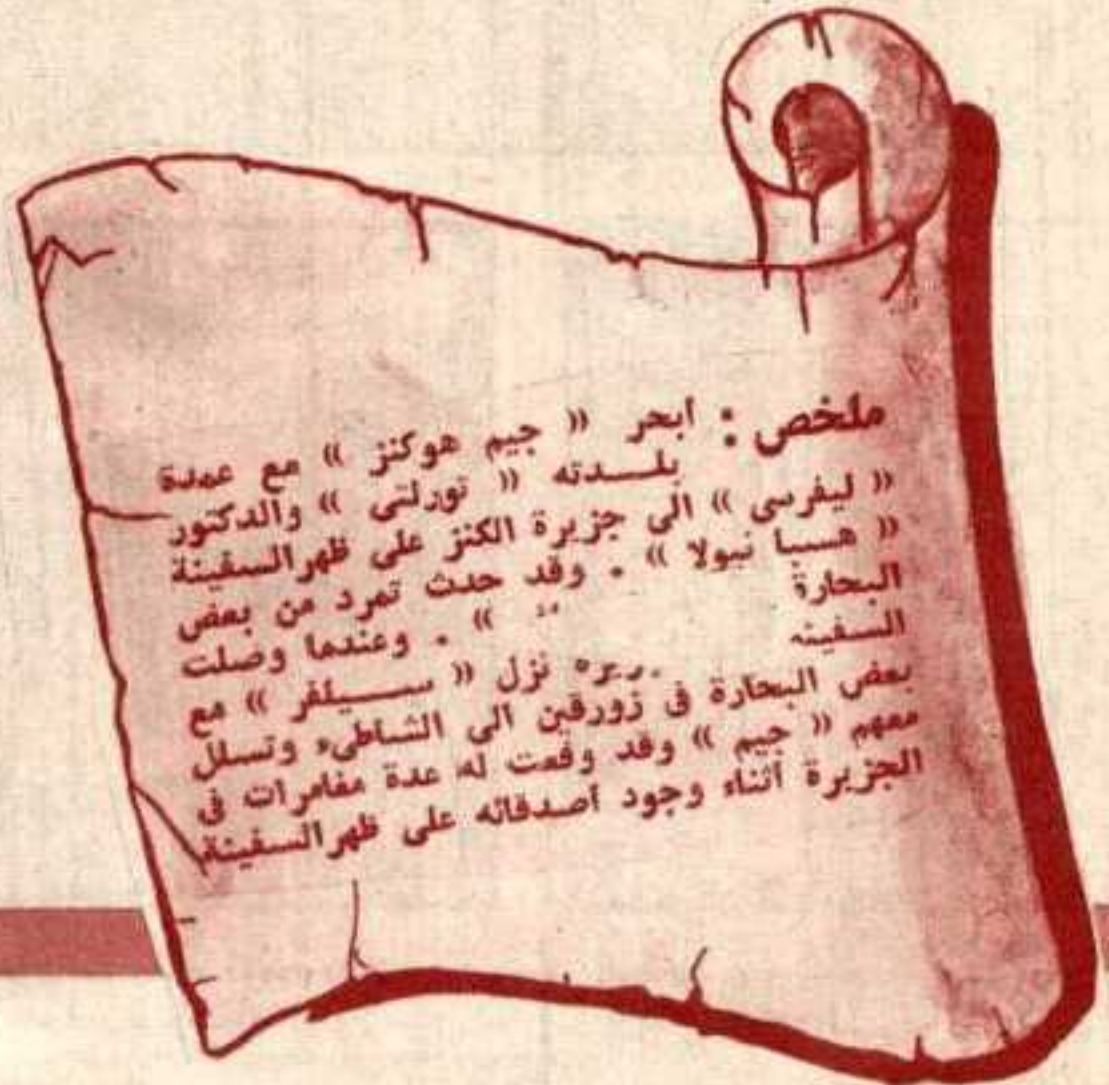 ملخص : ابحر « جيم هوكنز » مع عمدة
بلـــدته « تورلتى » والدكتور
« ليفرسى » الى جزيرة الكنز على ظهر السفينة
« هسبا نيولا » . وقد حدث تمرد من بعض
البحارة » . وعندما وصلت
السفينه نزل « ســـيلفر » مع
بعض البحارة فى زورقين الى الشاطىء وتسلل
معهم « جيم » وقد وقعت له عدة مغامرات فى
الجزيرة أثناء وجود أصدقائه على ظهر السفينة